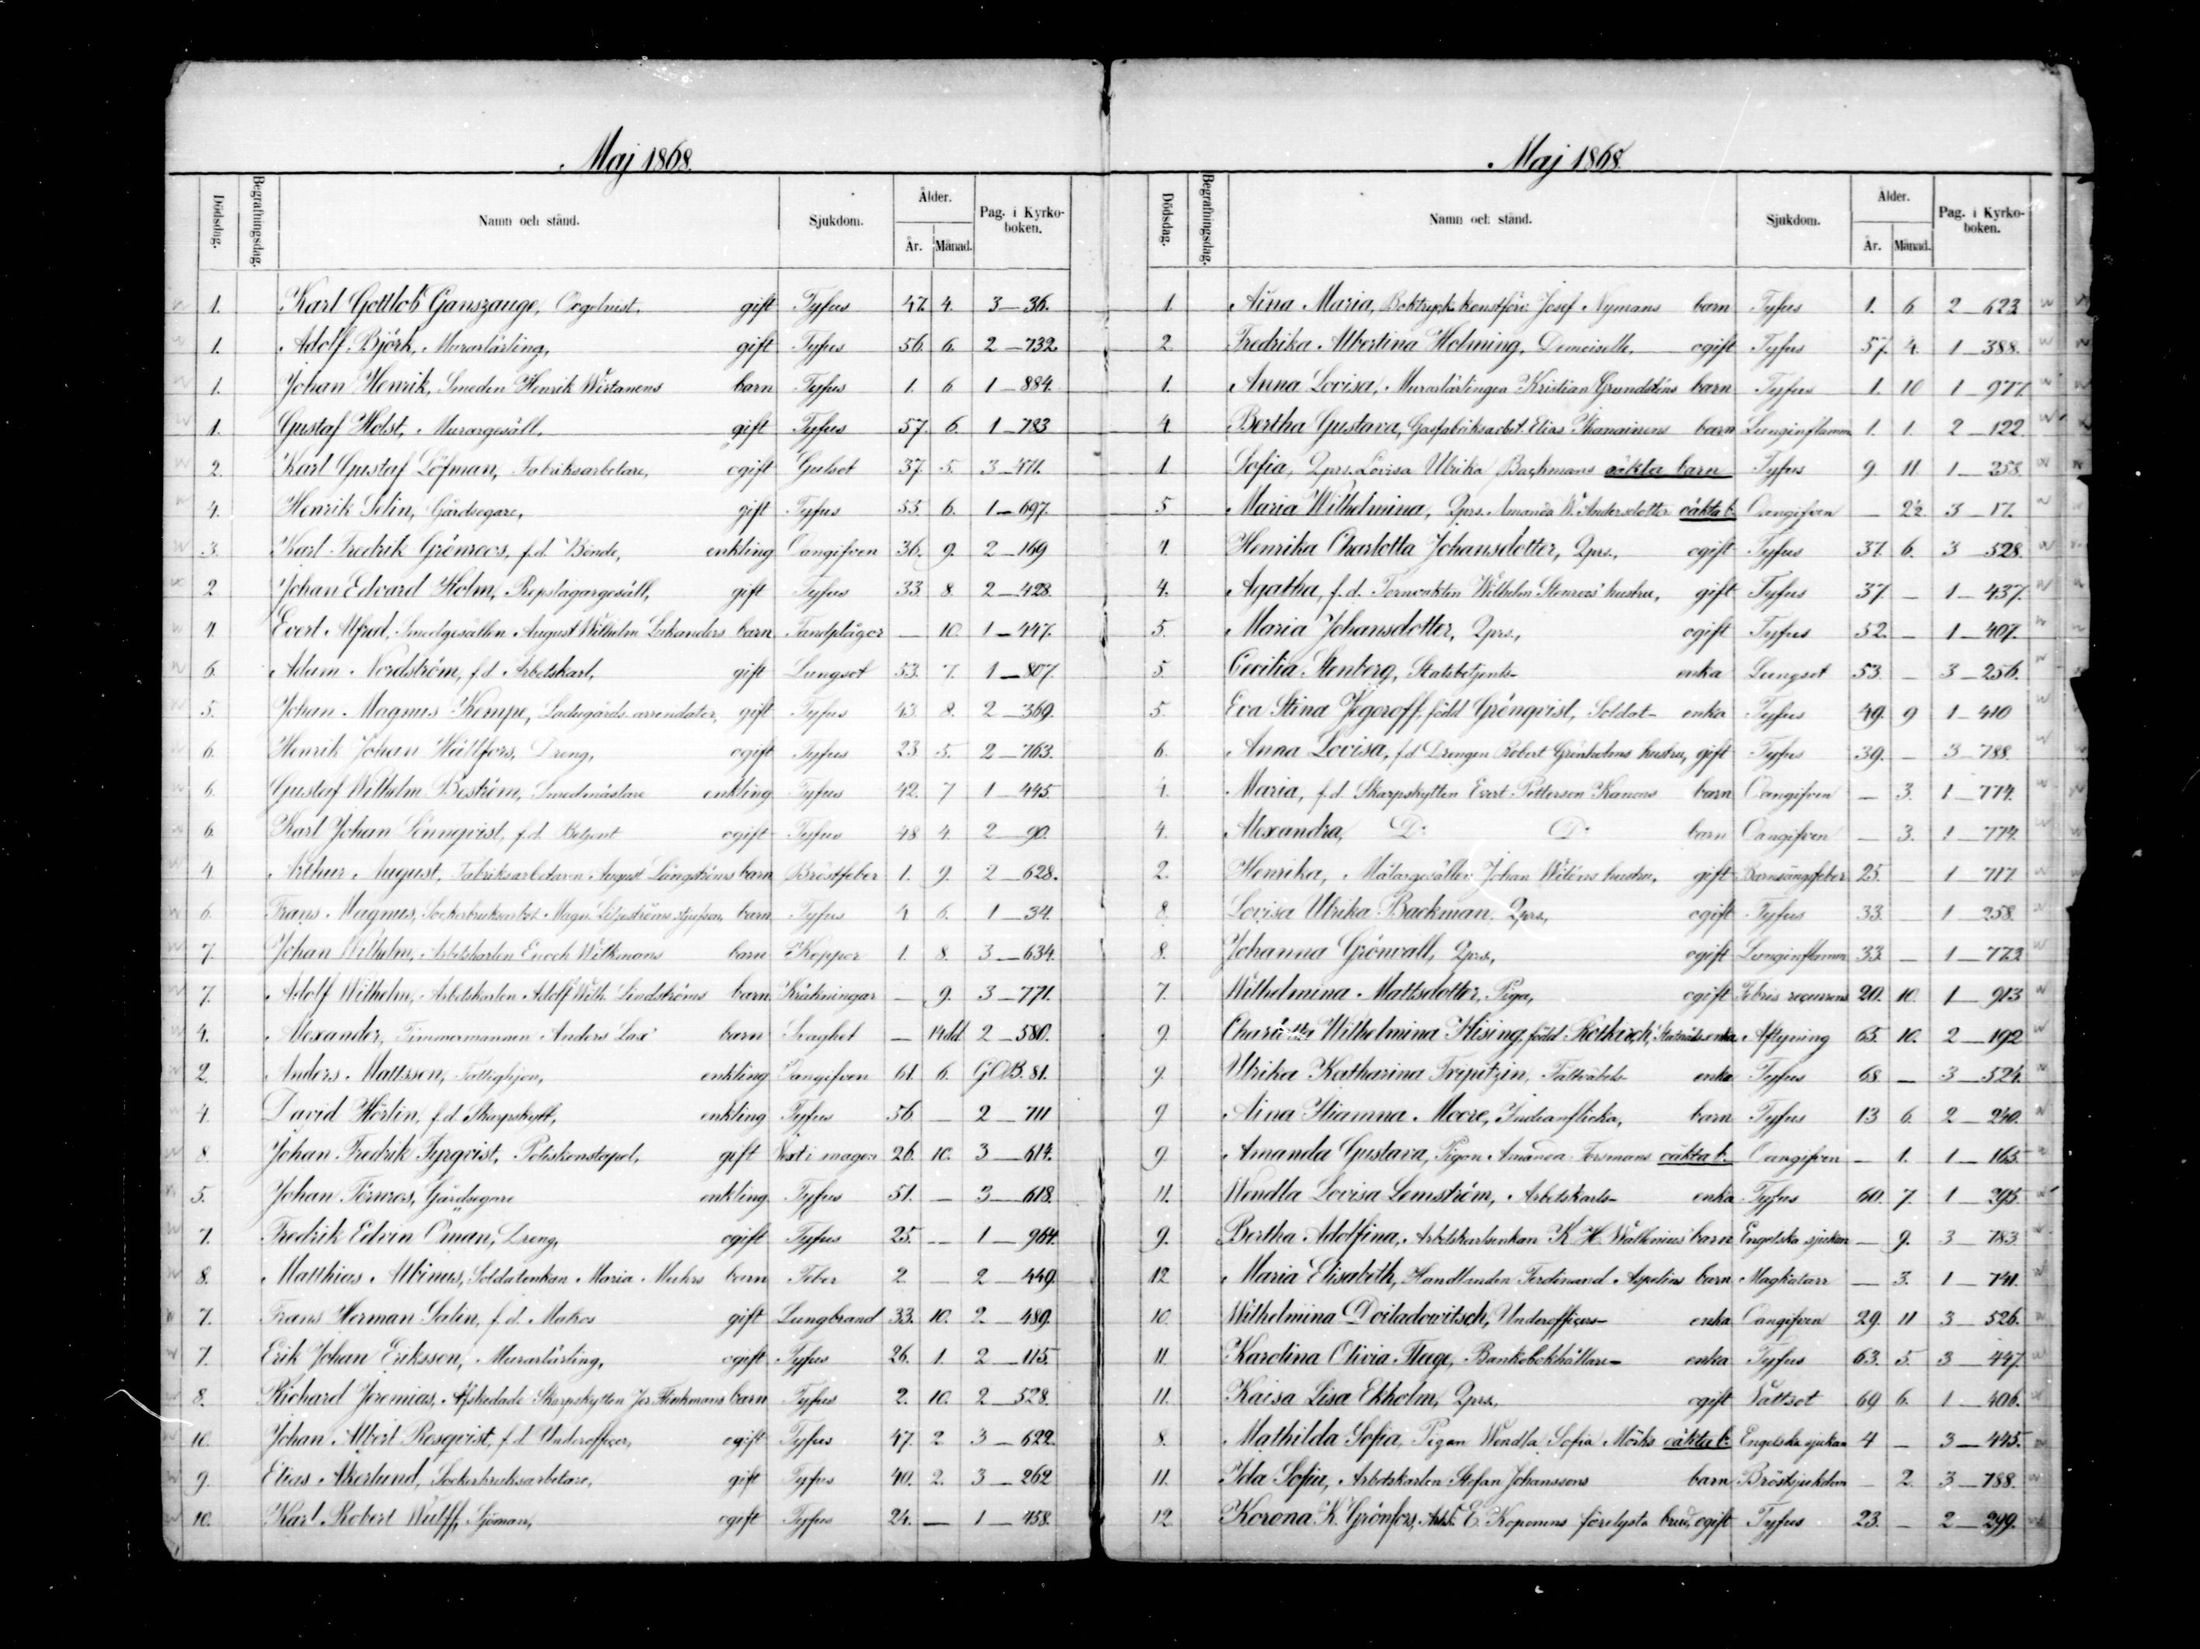 Maj 1868.
Dödsdag. Begrafningsdag. Namn och stånd. Sjukdom. Ålder. År. Månad. Pag. i Kyrko-boken.
1. Karl Gottlob Ganszauge, Orgelnist, gift Tyfus 47. 4. 3—36.
1. Adolf Björk, Murarlärling, gift Tyfus 56. 6. 2—732.
1. Johan Henrik, Smeden Henrik Wirtanens barn Tyfus 1. 6 1—884.
1. Gustaf Holst, Murargesäll, gift Tyfus 57. 6. 1—783
2. Karl Gustaf Löfman, Fabriksarbetare, ogift Gulsot 37. 5. 3—471.
4. Henrik Selin, Gårdsegare, gift Tyfus 55 6. 1—697.
3. Karl Fredrik Grönroos, f.d. Bonde, enkling Oangifven 36. 9. 2—169
2 Johan Edvard Holm, Repslagargesäll, gift Tyfus 33 8. 2—428.
4. Evert Alfred, Smedgesällen August Wilhelm Lukanders barn Tandplågor — 10. 1—447.
6. Adam Nordström, f.d. Arbetskarl, gift Lungsot 53. 7. 1—807.
5. Johan Magnus Kempe, Ladugårds arrendator, gift Tyfus 43 8. 2—369.
6. Henrik Johan Hällfors, Dreng, ogift Tyfus 23 5. 2—763.
6. Gustaf Wilhelm Boström, Smedmästare enkling Tyfus 42. 7 1—445.
6. Karl Johan Lönnqvist, f.d. Betjent ogift Tyfus 48 4. 2—90.
4 Arthur August, Fabriksarbetaren August Långströms barn Bröstfeber 1. 9. 2—628.
6. Frans Magnus, Sockerbruksarbet. Magn. Liljeströms styfson, barn Tyfus 4 6. 1—34.
7. Johan Wilhelm, Arbetskarlen Enoch Wilkmans barn Koppor 1. 8. 3—634.
7. Adolf Wilhelm, Arbetskarlen Adolf Wilh. Lindströms barn Kräkningar — 9. 3—771.
4. Alexander, Timmermannen Anders Lax' barn Svaghet — 14dd 2—580.
2. Anders Mattsson, Fattighjon, enkling Oangifven 61. 6. G.O.B. 81.
4. David Hörlin, f.d. Skarpskytt, enkling Tyfus 56. — 2—711
8. Johan Fredrik Fyrqvist, Poliskonstapel, gift Vext i magen 26. 10. 3—614.
5. Johan Törnros, Gårdsegare enkling Tyfus 51. — 3—618.
7. Fredrik Edvin Öman, Dreng, ogift Tyfus 25. — 1—964.
8. Matthias Albinus, Soldatenkan Maria Muhrs barn Feber 2. — 2—449.
7. Frans Herman Salin, f.d. Matros gift Lungbrand 33. 10. 2—489.
7. Erik Johan Eriksson, Murarlärling, ogift Tyfus 26. 1. 2—115.
8. Richard Jeremias, Afskedade Skarpskytten Jer. Flinkmans barn Tyfus 2. 10. 2—528.
10. Johan Albert Rosqvist, f.d. Underofficer, ogift Tyfus 47. 2 3—622.
9. Elias Åkerlund, Sockerbruksarbetare, gift Tyfus 40. 2. 3—262.
10. Karl Robert Wulff, Sjöman, ogift Tyfus 24. — 1—458.
Maj 1868.
Dödsdag. Begrafningsdag. Namn och stånd. Sjukdom. Ålder. År. Månad. Pag. i Kyrko-boken.
1. Aina Maria, Boktryck. konstför. Josef Nymans barn Tyfus 1. 6 2—623
2. Fredrika Albertina Holming, Demoiselle, ogift Tyfus 57. 4. 1—388.
1. Anna Lovisa, Murarlärlingen Kristian Grundströms barn Tyfus 1. 10 1—977.
4. Bertha Gustava, Gasfabriksarbet. Elias barn Lunginflamm. 1. 1. 2—122.
1. Sofia, Qprs. Lovisa Ulrika Backmans oäkta barn Tyfus 9. 11. 1—258.
5 Maria Wilhelmina, Qprs. Amanda W. Andersdotter oäkta b. Oangifven — 2½ 3—17.
4. Henrika Charlotta Johansdotter, Qprs., ogift Tyfus 37. 6. 3—528.
4. Agatha, f.d. Tornvakten Wilhelm Stenroos' hustru, gift Tyfus 37. — 1—437.
5. Maria Johansdotter, Qprs., ogift Tyfus 52. — 1—407.
5. Cecilia Stenberg, Statsbetjents- enka Lungsot 53. — 3—256.
5. Eva Stina Jegoroff, född Grönqvist, Soldat- enka Tyfus 49. 9 1—410
6. Anna Lovisa, f.d. Drengen Robert Grönholms hustru, gift Tyfus 39. — 3—788.
4. Maria, f.d. Skarpskytten Evert Petterson Kanons barn Oangifven — 3. 1—774.
4. Alexandra, D:o D:o barn Oangifven — 3. 1—774.
2. Henrika, Målargesällen Johan Wiléns hustru, gift Barnsängsfeber 25. 1—717.
8. Lovisa Ulrika Backman, Qprs., ogift Tyfus 33. — 1—258.
8. Johanna Grönvall, Qprs., ogift Lunginflamm. 33. — 1—773
7. Wilhelmina Mattsdotter, Piga, ogift Febris recurrens 20. 10. 1—913
9. Charlotta Wilhelmina Hising, född Rotkirch, Statsråds enka Aftyning 65. 10. 2—192
9. Ulrika Katharina Tripitzin, Fältväbels- enka Tyfus 68 — 3—524.
9 Aina Hianna Moore, Indianflicka, barn Tyfus 13 6. 2—240.
9. Amanda Gustava, Pigan Amanda Forsmans oäkta b. Oangifven — 1. 1—165.
11. Wendla Lovisa Lemström, Arbetskarls- enka Tyfus 60. 7. 1—295.
9. Bertha Adolfina, Arbetskarlsenkan K. H. Wallenius' barn Engelska sjukan — 9. 3—783
12. Maria Elisabeth, Handlanden Ferdinand Aspelins barn Magkatarr — 3. 1—741.
10. Wilhelmina Doiladowitsch, Underofficers- enka Oangifven 29. 11 3—526.
11. Karolina Olivia Flege, Bankobokhållare- enka Tyfus 63. 5. 3—447.
11. Kaisa Lisa Ekholm, Qprs., ogift Vattsot 69 6. 1—406.
8. Mathilda Sofia, Pigan Wendla Sofia Mörks oäkta b. Engelska sjukan 4 — 3—445.
11. Ida Sofia, Arbetskarlen Stefan Johanssons barn Bröstsjukdom — 2. 3—788.
12. Korona K. Grönfors, Arb.k. E. Koponens förelysta brud, ogift Tyfus 23. — 2—299.